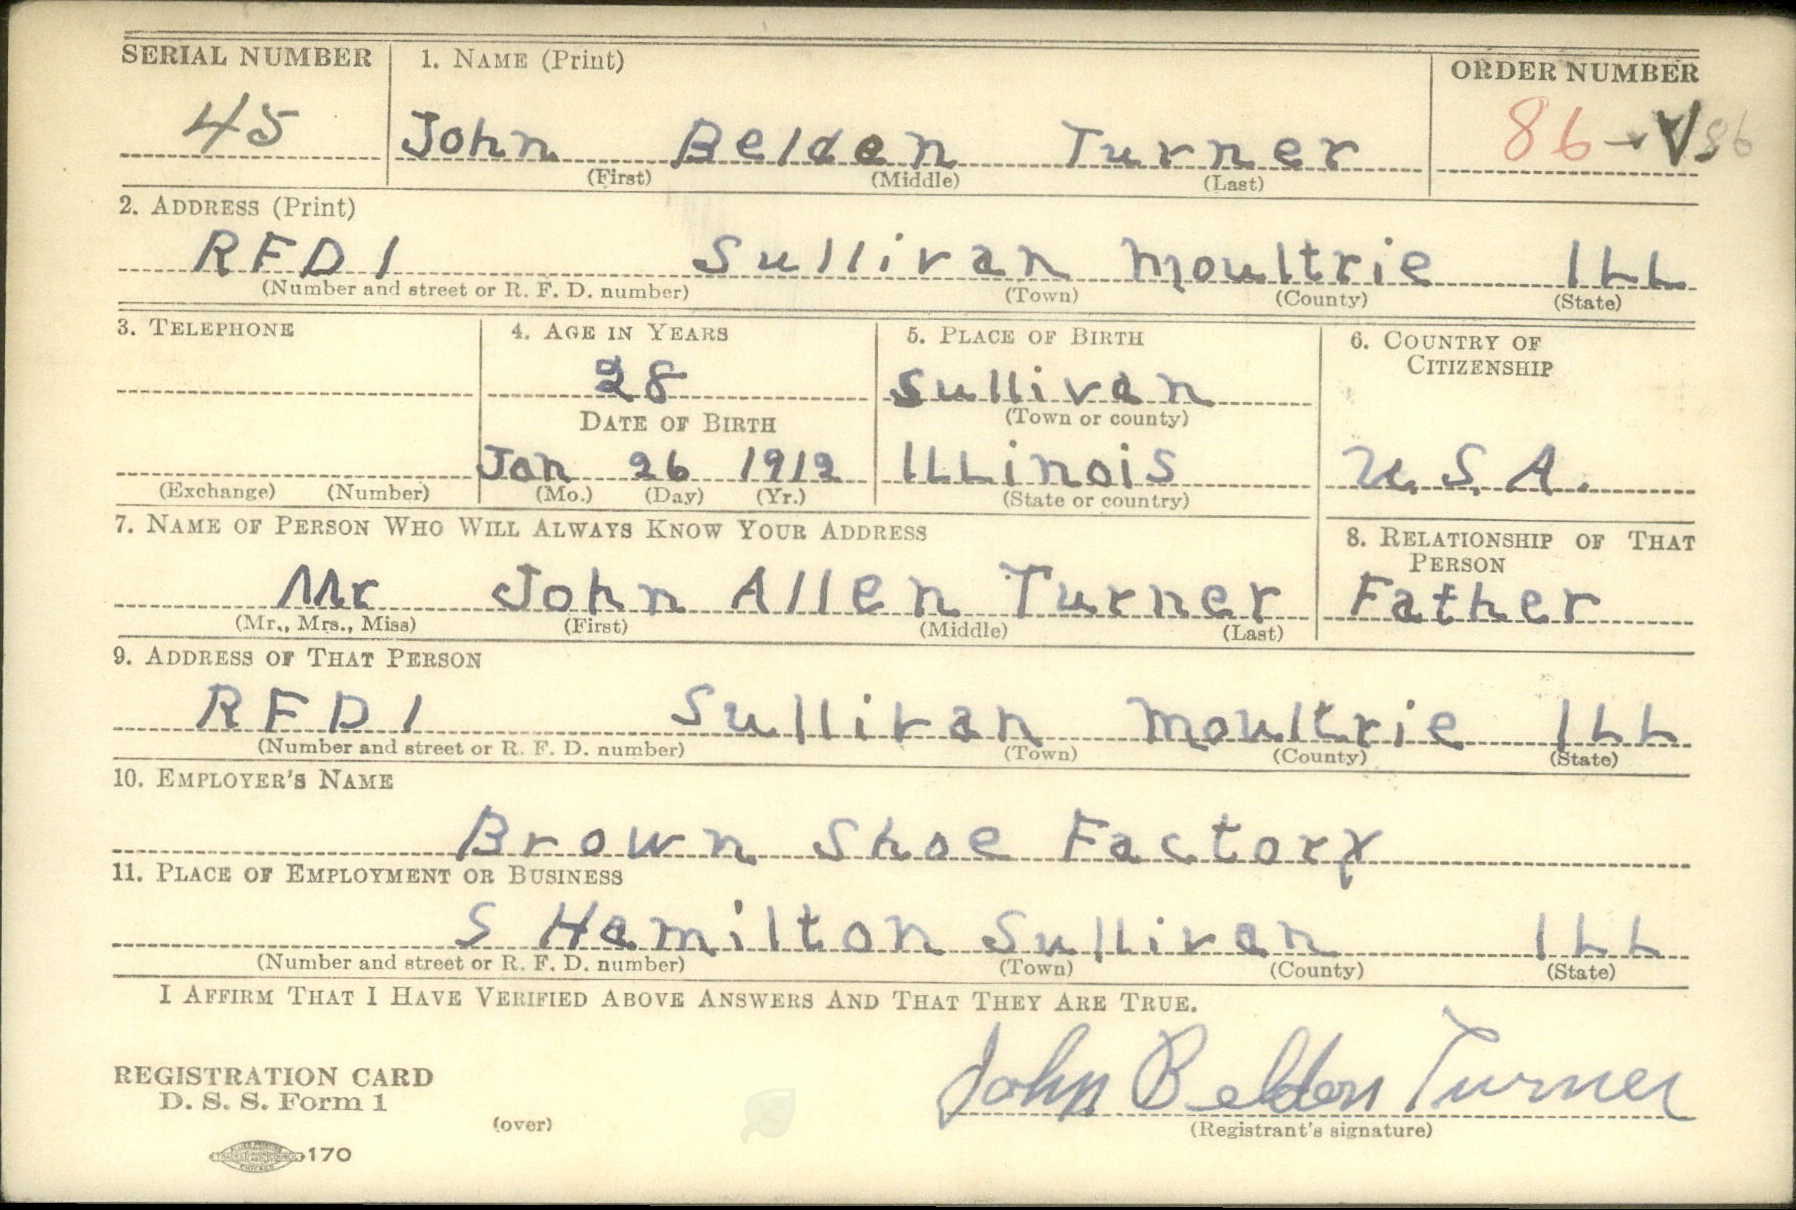 SERIAL NUMBER 1. NAME (Print) ORDER NUMBER
45 John Belden Turner 86 V86
(First) (Middle) (Last)
2. ADDRESS (Print)
RFD 1 Sullivan Moultrie ILL
(Number and street or R. F. D. number) (Town) (County) (State)
3. TELEPHONE 4. AGE IN YEARS 5. PLACE OF BIRTH 6. COUNTRY OF
CITIZENSHIP
28 Sullivan
DATE OF BIRTH (Town or county)
Jan 26 1912 ILLinois U.S.A.
(Exchange) (Number) (Mo.) (Day) (Yr.) (State or country)
7. NAME OF PERSON WHO WILL ALWAYS KNOW YOUR ADDRESS 8. RELATIONSHIP OF THAT
PERSON
Mr John Allen Turner Father
(Mr., Mrs., Miss) (First) (Middle) (Last)
9. ADDRESS OF THAT PERSON
RFD 1 Sullivan Moultrie ILL
(Number and street or R. F. D. number) (Town) (County) (State)
10. EMPLOYER'S NAME
Brown Shoe Factory
11. PLACE OF EMPLOYMENT OR BUSINESS
S Hamilton Sullivan ILL
(Number and street or R. F. D. number) (Town) (County) (State)
I AFFIRM THAT I HAVE VERIFIED ABOVE ANSWERS AND THAT THEY ARE TRUE.
REGISTRATION CARD John Belden Turner
D. S. S. Form 1
(over) (Registrant's signature)
170